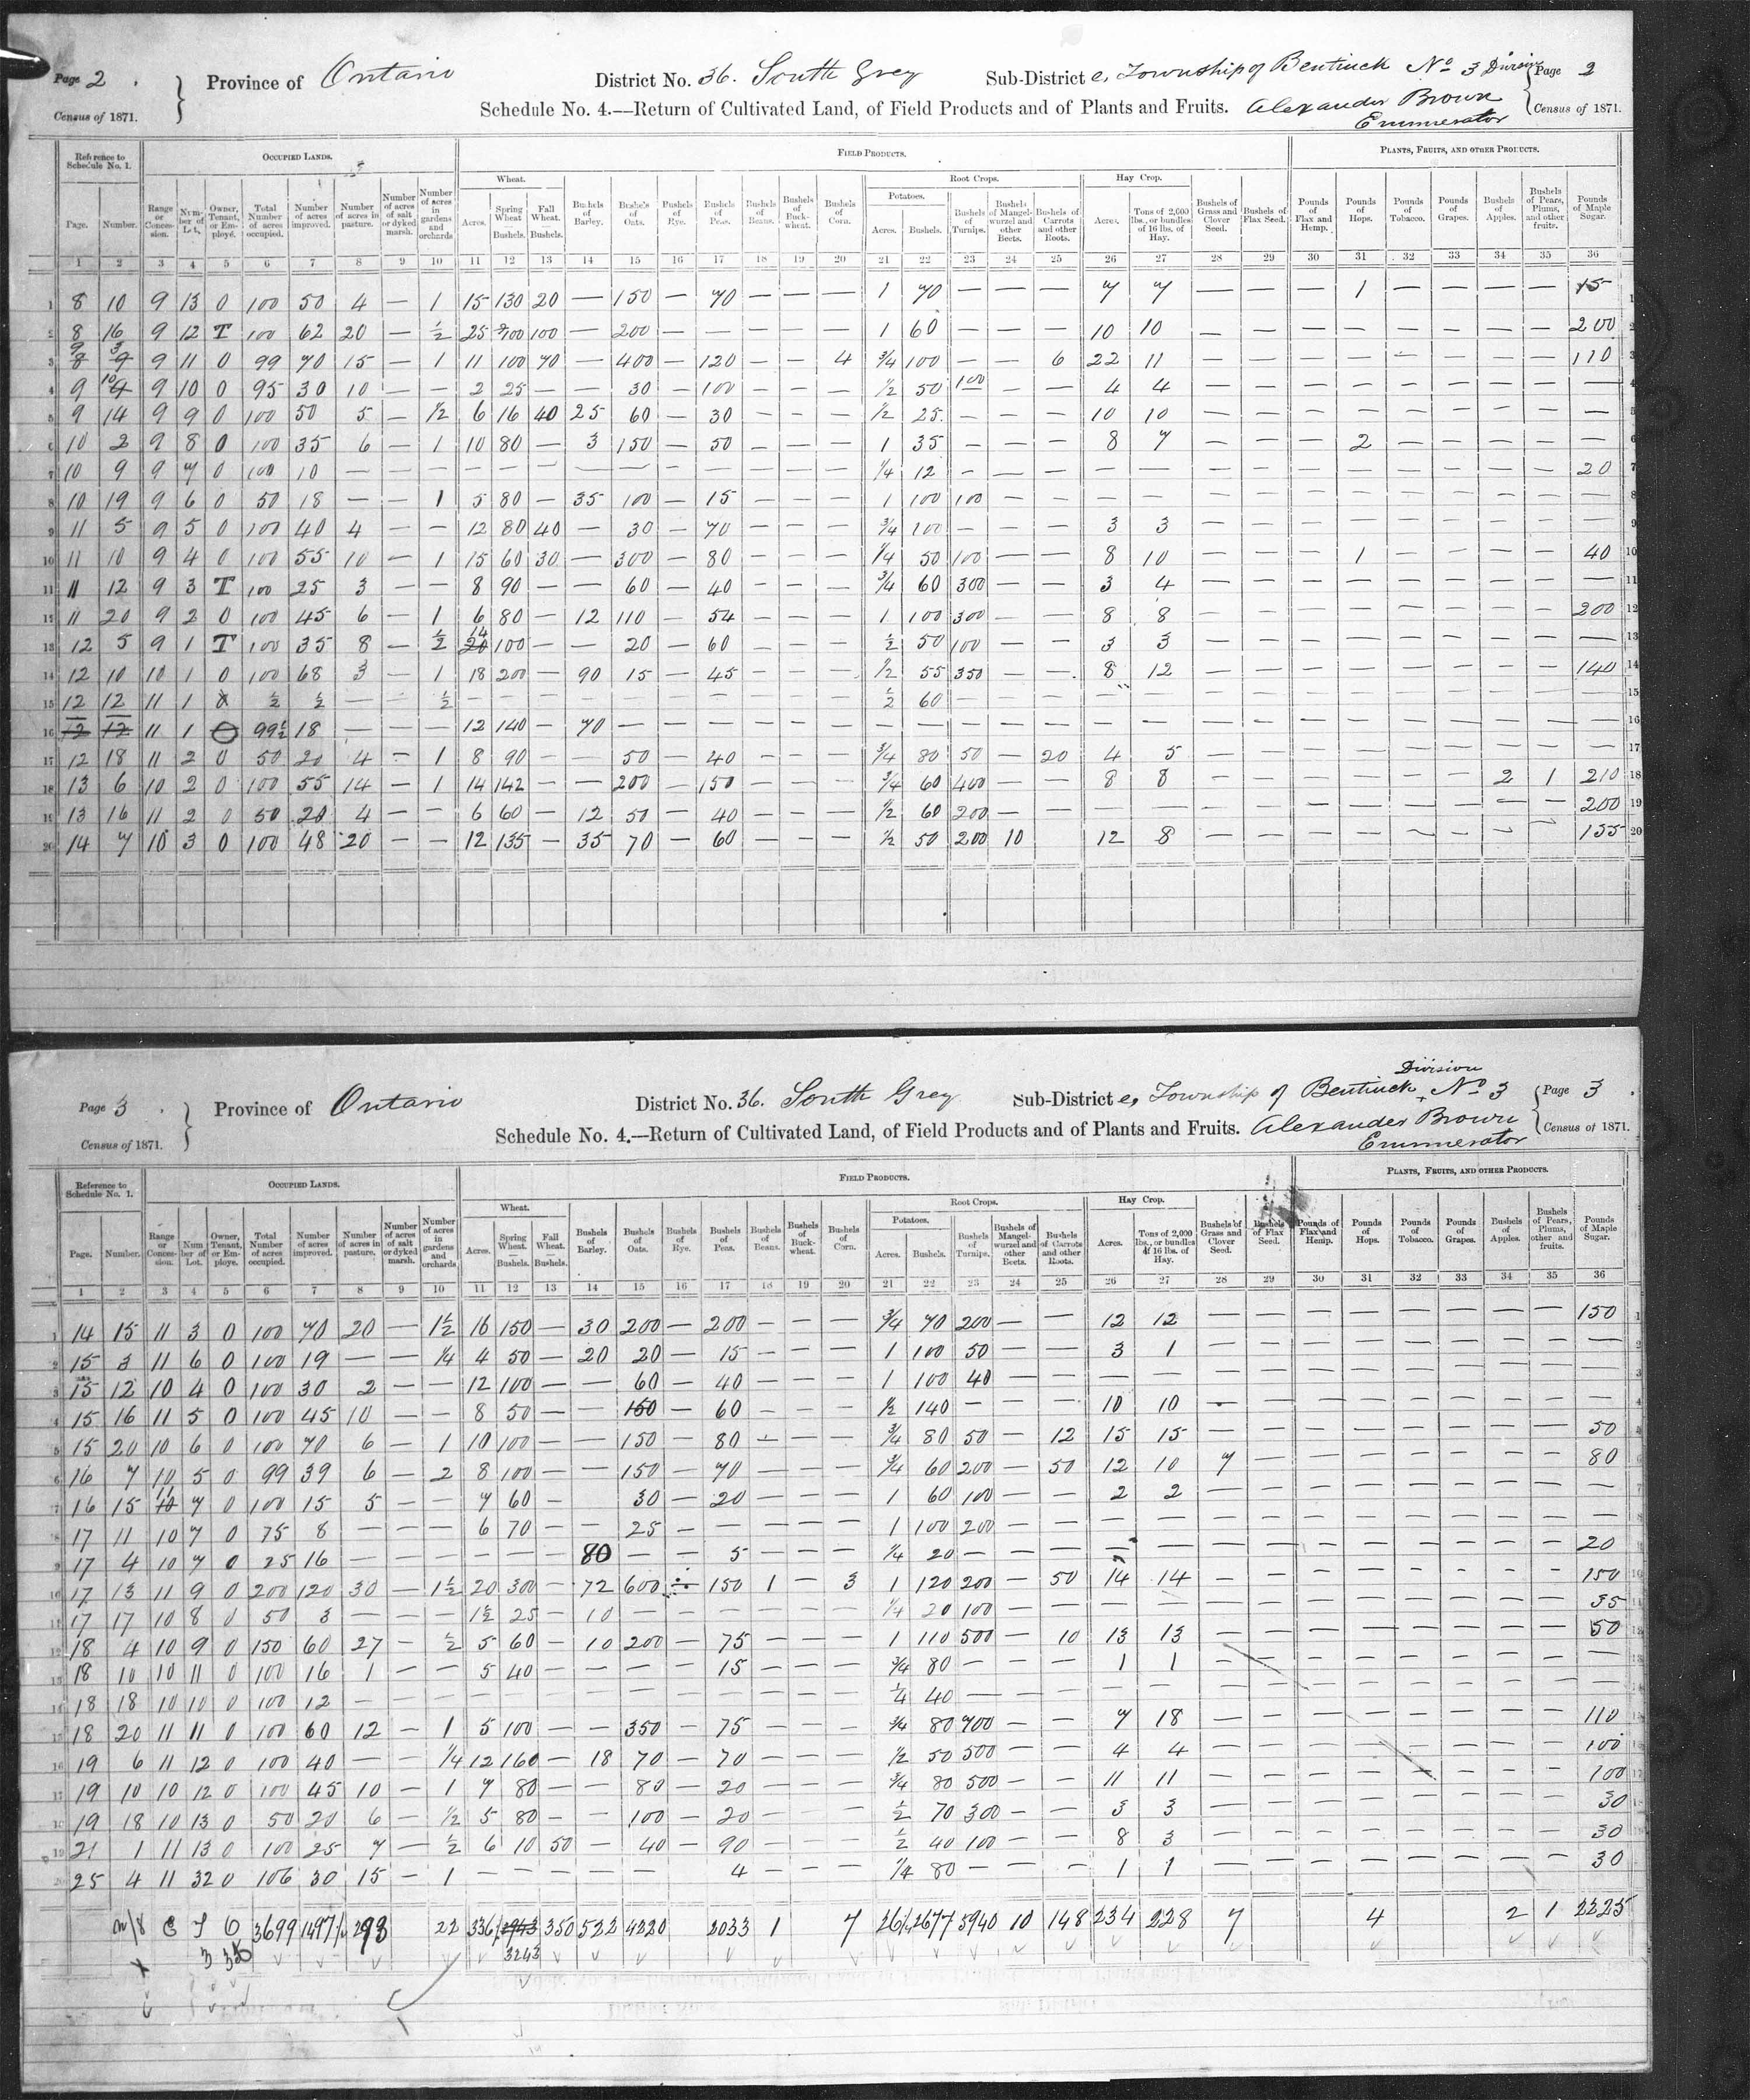 Page 2 . Province of Ontario District No. 36. South Grey Sub-District e, Township of Bentinck No 3 Division Page 2
Census of 1871. Schedule No. 4.—Return of Cultivated Land, of Field Products and of Plants and Fruits. Alexander Brown Census of 1871.
Enumerator
Reference to Schedule No. 1. OCCUPIED LANDS. FIELD PRODUCTS. PLANTS, FRUITS, AND OTHER PRODUCTS.
Wheat. Root Crops. Hay Crop.
Potatoes.
Page. Number. Range or Concession. Number of Lot, Owner, Tenant, or Employé. Total Number of acres occupied. Number of acres improved. Number of acres in pasture. Number of acres of salt or dyked marsh. Number of acres in gardens and orchards Acres. Spring Wheat — Bushels. Fall Wheat. — Bushels. Bushels of Barley. Bushels of Oats. Bushels of Rye. Bushels of Peas. Bushels of Beans. Bushels of Buckwheat. Bushels of Corn. Acres. Bushels. Bushels of Turnips. Bushels of Mangel-wurzel and other Beets. Bushels of Carrots and other Roots. Acres. Tons of 2,000 lbs., or bundles of 16 lbs. of Hay. Bushels of Grass and Clover Seed. Bushels of Flax Seed. Pounds of Flax and Hemp. Pounds of Hops. Pounds of Tobacco. Pounds of Grapes. Bushels of Apples. Bushels of Pears, Plums, and other fruits. Pounds of Maple Sugar.
1 2 3 4 5 6 7 8 9 10 11 12 13 14 15 16 17 18 19 20 21 22 23 24 25 26 27 28 29 30 31 32 33 34 35 36
1 8 10 9 13 O 100 50 4 — 1 15 130 20 — 150 — 70 — — — 1 70 — — — 7 7 — — — 1 — — — — 15 1
2 8 16 9 12 T 100 62 20 — ½ 25 700 100 — 200 — — — — — 1 60 — — — 10 10 — — — — — — — — 200 2
3 9 3 9 11 O 99 70 15 — 1 11 100 70 — 400 — 120 — — 4 ¾ 100 — — 6 22 11 — — — — — — — — 110 3
4 9 10 9 10 O 95 30 10 — — 2 25 — — 30 — 100 — — — ½ 50 100 — — 4 4 — — — — — — — — — 4
5 9 14 9 9 O 100 50 5 — ½ 6 16 40 25 60 — 30 — — — ½ 25 — — — 10 10 — — — — — — — — — 5
6 10 2 9 8 O 100 35 6 — 1 10 80 — 3 150 — 50 — — — 1 35 — — — 8 7 — — — 2 — — — — — 6
7 10 9 9 7 O 100 10 — — — — — — — — — — — — — ¼ 12 — — — — — — — — — — — — — 20 7
8 10 19 9 6 O 50 18 — — 1 5 80 — 35 100 — 15 — — — 1 100 100 — — — — — — — — — — — — — 8
9 11 5 9 5 O 100 40 4 — — 12 80 40 — 30 — 70 — — — ¾ 100 — — — 3 3 — — — — — — — — — 9
10 11 10 9 4 O 100 55 10 — 1 15 60 30 — 300 — 80 — — — ¼ 50 100 — — 8 10 — — — 1 — — — — 40 10
11 11 12 9 3 T 100 25 3 — — 8 90 — — 60 — 40 — — — ¾ 60 300 — — 3 4 — — — — — — — — — 11
12 11 20 9 2 O 100 45 6 — 1 6 80 — 12 110 — 54 — — — 1 100 300 — — 8 8 — — — — — — — — 200 12
13 12 5 9 1 T 100 35 8 — ½ 14 100 — — 20 — 60 — — — ½ 50 100 — — 3 3 — — — — — — — — — 13
14 12 10 10 1 O 100 68 3 — 1 18 200 — 90 15 — 45 — — — ½ 55 350 — — 8 12 — — — — — — — — 140 14
15 12 12 11 1 X ½ ½ — — ½ — — — — — — — — — — ½ 60 — — — — — — — — — — — — — — 15
16 12 12 11 1 O 99½ 18 — — — 12 140 — 70 — — — — — — — — — — — — — — — — — — — — — — 16
17 12 18 11 2 O 50 20 4 — 1 8 90 — — 50 — 40 — — — ¾ 80 50 — 20 4 5 — — — — — — — — — 17
18 13 6 10 2 O 100 55 14 — 1 14 142 — — 200 — 150 — — — ¾ 60 400 — — 8 8 — — — — — — 2 1 210 18
19 13 16 11 2 O 50 20 4 — — 6 60 — 12 50 — 40 — — — ½ 60 200 — — — — — — — — — — — — 200 19
20 14 7 10 3 O 100 48 20 — — 12 135 — 35 70 — 60 — — — ½ 50 200 10 12 8 — — — — — — — — 155 20
Division
Page 3 . Province of Ontario District No. 36. South Grey Sub-District e, Township of Bentinck, No 3 Page 3 .
Census of 1871. Schedule No. 4.—Return of Cultivated Land, of Field Products and of Plants and Fruits. Alexander Brown Census of 1871.
Enumerator
Reference to Schedule No. 1. OCCUPIED LANDS. FIELD PRODUCTS. PLANTS, FRUITS, AND OTHER PRODUCTS.
Wheat. Root Crops. Hay Crop.
Potatoes.
Page. Number. Range or Concession. Number of Lot. Owner, Tenant, or Employe. Total Number of acres occupied. Number of acres improved. Number of acres in pasture. Number of acres of salt or dyked marsh. Number of acres in gardens and orchards Acres. Spring Wheat. — Bushels. Fall Wheat. — Bushels. Bushels of Barley. Bushels of Oats. Bushels of Rye. Bushels of Peas. Bushels of Beans. Bushels of Buckwheat. Bushels of Corn. Acres. Bushels. Bushels of Turnips. Bushels of Mangel-wurzel and other Beets. Bushels of Carrots and other Roots. Acres. Tons of 2,000 lbs., or bundles of 16 lbs. of Hay. Bushels of Grass and Clover Seed. Bushels of Flax Seed. Pounds of Flax and Hemp. Pounds of Hops. Pounds of Tobacco. Pounds of Grapes. Bushels of Apples. Bushels of Pears, Plums, and other fruits. Pounds of Maple Sugar.
1 2 3 4 5 6 7 8 9 10 11 12 13 14 15 16 17 18 19 20 21 22 23 24 25 26 27 28 29 30 31 32 33 34 35 36
1 14 15 11 3 O 100 70 20 — 1½ 16 150 — 30 200 — 200 — — — ¾ 70 200 — — 12 12 — — — — — — — — 150 1
2 15 3 11 6 O 100 19 — — ¼ 4 50 — 20 20 — 15 — — — 1 100 50 — — 3 1 — — — — — — — — — 2
3 15 12 10 4 O 100 30 2 — — 12 100 — — 60 — 40 — — — 1 100 40 — — — — — — — — — — — — — 3
4 15 16 11 5 O 100 45 10 — — 8 50 — — 150 — 60 — — — ½ 140 — — — 10 10 — — — — — — — — — 4
5 15 20 10 6 O 100 70 6 — 1 10 100 — — 150 — 80 — — — ¾ 80 50 — 12 15 15 — — — — — — — — 50
6 16 7 10 5 O 99 39 6 — 2 8 100 — — 150 — 70 — — — ¾ 60 200 — 50 12 10 7 — — — — — — — 80
7 16 15 11 7 O 100 15 5 — — 7 60 — 30 — 20 — — — 1 60 100 — — 2 2 — — — — — — — — —
8 17 11 10 7 O 75 8 — — — 6 70 — — 25 — — — — — 1 100 200 — — — — — — — — — — — — —
9 17 4 10 7 O 25 16 — — — — — — 80 — — 5 — — — ¼ 20 — — — — — — — — — — — — — 20
10 17 13 11 9 O 200 120 30 — 1½ 20 300 — 72 600 — 150 1 — 3 1 120 200 — 50 14 14 — — — — — — — — 150
11 17 17 10 8 O 50 3 — — — 1½ 25 — 10 — — — — — — ¼ 20 100 — — — — — — — — — — — — 35
12 18 4 10 9 O 150 60 27 — ½ 5 60 — 10 200 — 75 — — — 1 110 500 — 10 13 13 — — — — — — — — 50
13 18 10 10 11 O 100 16 1 — — 5 40 — — — — 15 — — — ¾ 80 — — — 1 1 — — — — — — — — —
14 18 18 10 10 O 100 12 — — — — — — — — — — — — — ¼ 40 — — — — — — — — — — — — — —
15 18 20 11 11 O 100 60 12 — 1 5 100 — — 350 — 75 — — — ¾ 80 700 — — 7 18 — — — — — — — — 110
16 19 6 11 12 O 100 40 — — ¼ 12 160 — 18 70 — 70 — — — ½ 50 500 — — 4 4 — — — — — — — — 100
17 19 10 10 12 O 100 45 10 — 1 7 80 — — 80 — 20 — — — ¾ 80 500 — — 11 11 — — — — — — — — 100
18 19 18 10 13 O 50 20 6 — ½ 5 80 — — 100 — 20 — — — ½ 70 300 — — 3 3 — — — — — — — — 30
19 21 1 11 13 O 100 25 7 — ½ 6 10 50 — 40 — 90 — — — ½ 40 100 — — 8 3 — — — — — — — — 30
20 25 4 11 32 O 106 30 15 — 1 — — — — — — 4 — — — ¼ 80 — — — 1 1 — — — — — — — — 30
E T O 3699 1497½ 298 22 336½ 2943 350 522 4220 2033 1 7 26¼ 2677 5940 10 148 234 228 7 4 2 1 2225
3 36 3243